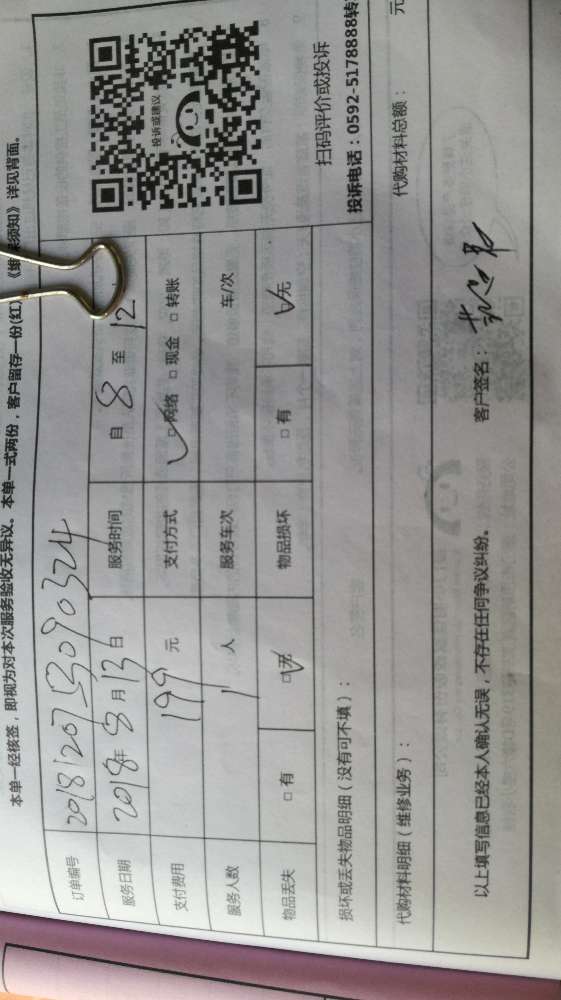 本单一经核签，即视为对本次服务验收无异议。本单一式两份，客户留存一份(红)，《维保须知》详见背面。
订单编号 2018120753090324
服务日期 2018年8月13日 服务时间 自 8 至 12
支付费用 199 元 支付方式 □网络 □现金 □转账
服务人数 1 人 服务车次 车/次
物品丢失 □有 □无 物品损坏 □有 □无
投诉或建议
扫码评价或投诉
投诉电话：0592-5178888转
损坏或丢失物品明细（没有可不填）：
代购材料明细（维修业务）： 代购材料总额： 元
以上填写信息已经本人确认无误，不存在任何争议纠纷。 客户签名：